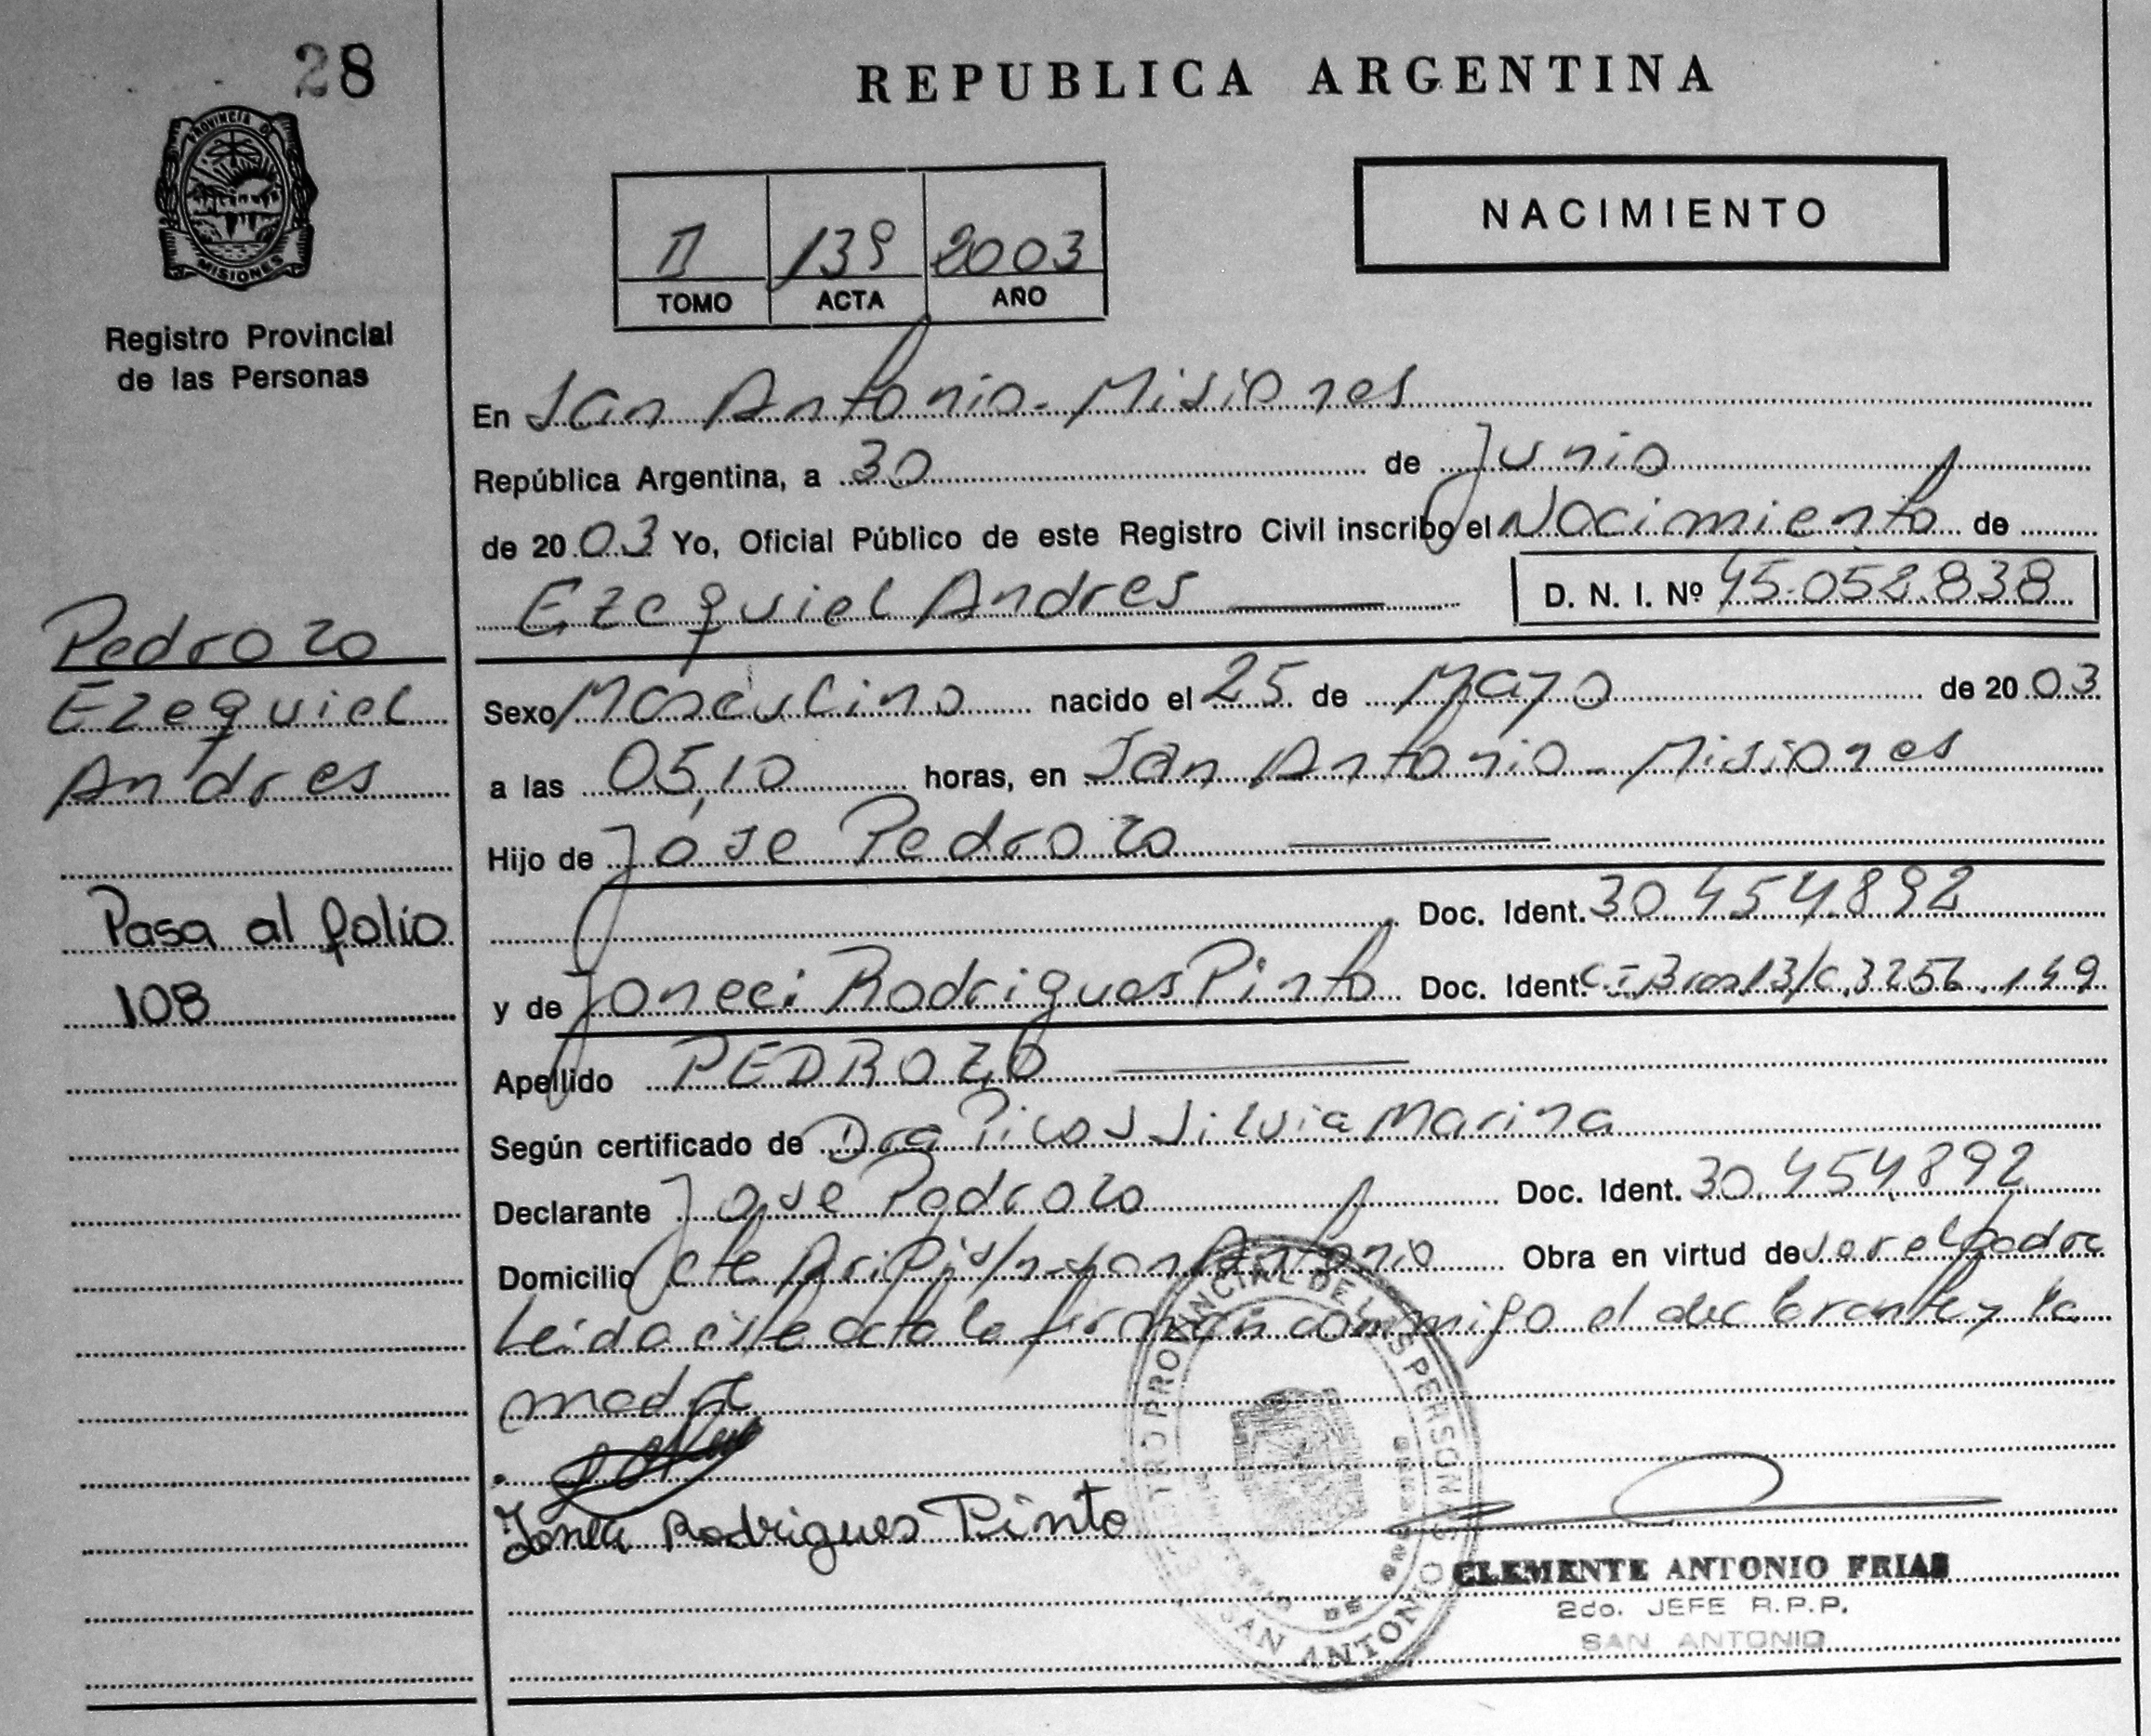 28
PROVINCIA DE
MISIONES
Registro Provincial
de las Personas
REPUBLICA ARGENTINA
NACIMIENTO
II 139 2003
TOMO ACTA AÑO
En San Antonio - Misiones
República Argentina, a 30 de Junio
de 2003 Yo, Oficial Público de este Registro Civil inscribo el Nacimiento de
Ezequiel Andres D. N. I. Nº 45.052.838
Pedrozo
Ezequiel
Andres
Sexo Masculino nacido el 25 de Mayo de 2003
a las 05,10 horas, en San Antonio - Misiones
Hijo de Jose Pedrozo
Doc. Ident. 30.454.892
Pasa al folio
108
y de Joneci Rodrigues Pinto Doc. Ident.
Apellido PEDROZO
Según certificado de Dra Silvia Marina
Declarante Jose Pedrozo Doc. Ident. 30.454.892
Domicilio s/n - San Antonio Obra en virtud de ser el padre
Leida este acta la firman conmigo el declarante y la
madre
Rodrigues Pinto
REGISTRO PROVINCIAL DE LAS PERSONAS
SAN ANTONIO
CLEMENTE ANTONIO FRIAS
2do. JEFE R.P.P.
SAN ANTONIO